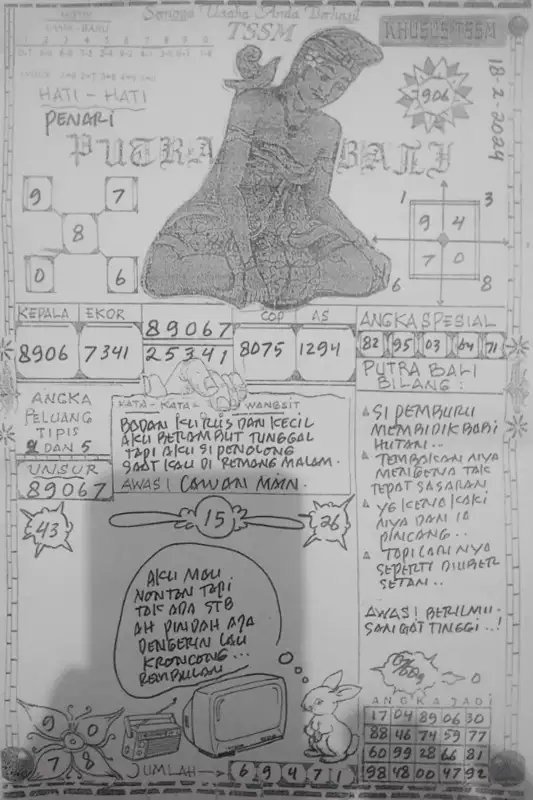 Semoga Usaha Anda Berhasil
TSSM
KHUSUS TSSM
MISTIK
LAMA - BARU
18-2-2024
1906
HATI - HATI
PENARI
PUTRA BALI
9 7
8
0 6
1 3
9 4
7 0
6 8
KEPALA EKOR
8906 7341
89067
25341
COP AS
8075 1294
ANGKA SPESIAL
82 95 03 64 71
ANGKA
PELUANG
TIPIS
2 DAN 5
UNSUR
89067
KATA - KATA - WANGSIT
BADAN KU KURUS DAN KECIL
AKU BERAMBUT TUNGGAL
TAPI AKU SI PENOLONG
SAAT KAU DI REMANG MALAM.
AWAS! CAWAN MAIN.
PUTRA BALI
BILANG:
SI PEMBURU
MEMBIDIK BABI
HUTAN..
TEMBAKAN NYA
MENGENA TAK
TEPAT SASARAN
YG KENA KAKI
NYA DAN IA
PINCANG..
TAPI LARI NYA
SEPERTI DIUBER
SETAN..
AWAS! BERILMU
SANGAT TINGGI..!
43
15
26
AKU MAU
NONTON TAPI
TAK ADA STB
AH PINDAH AJA
DENGERIN LAU
KRONCONG...
REMBULAN
9 0
7 8
JUMLAH → 6 9 4 7 1
0
ANGKA JADI
17 04 89 06 30
88 46 74 59 77
60 99 28 66 81
98 48 00 47 92